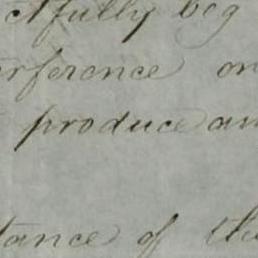 ctfully beg
erference on
produce an
tance of the